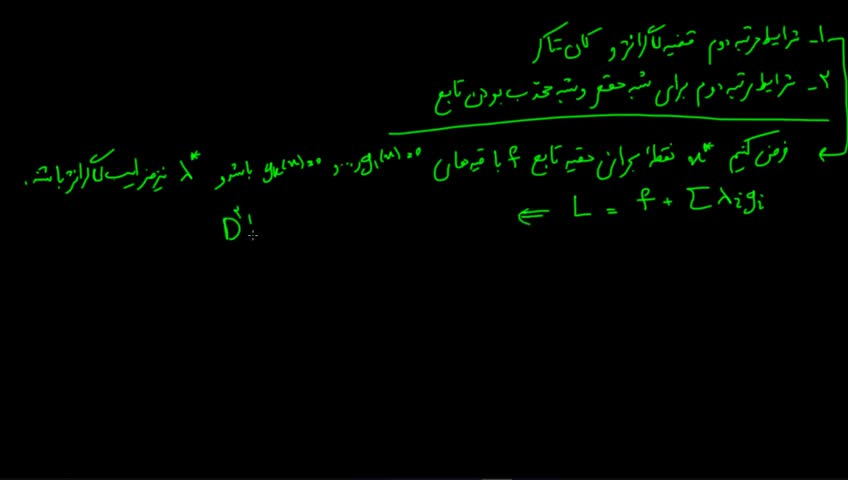 ۱- شرایط مرتبه دوم قضیه لاگرانژ و کان تاکر
۲- شرایط مرتبه دوم برای شبه مقعر و شبه محدب بودن تابع
فرض کنیم x* نقطه بحرانی مقید تابع f با قیدهای g₁(x)=0, ..., gₖ(x)=0 باشد و λ* نیز ضرایب لاگرانژ باشد.
L = f + Σ λᵢgᵢ ⇐
D²